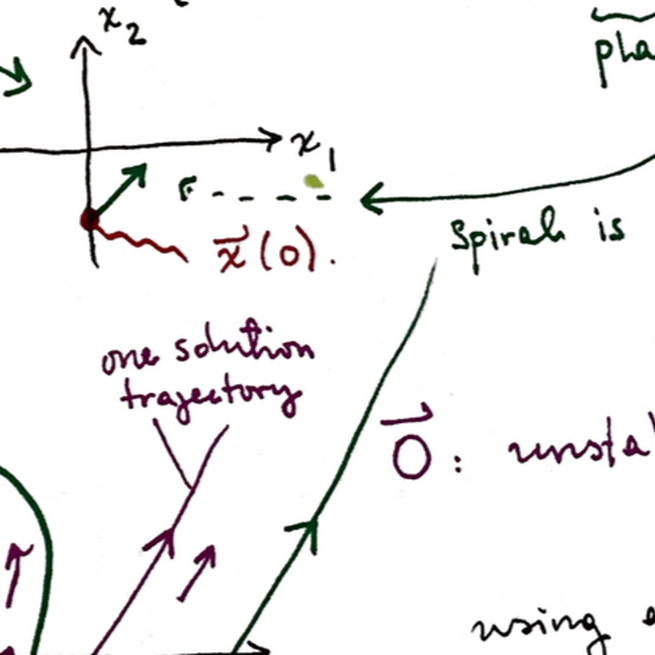 x₂
pha
x₁
Spiral is
x⃗(0).
one solution
trajectory
0⃗ : unsta
using